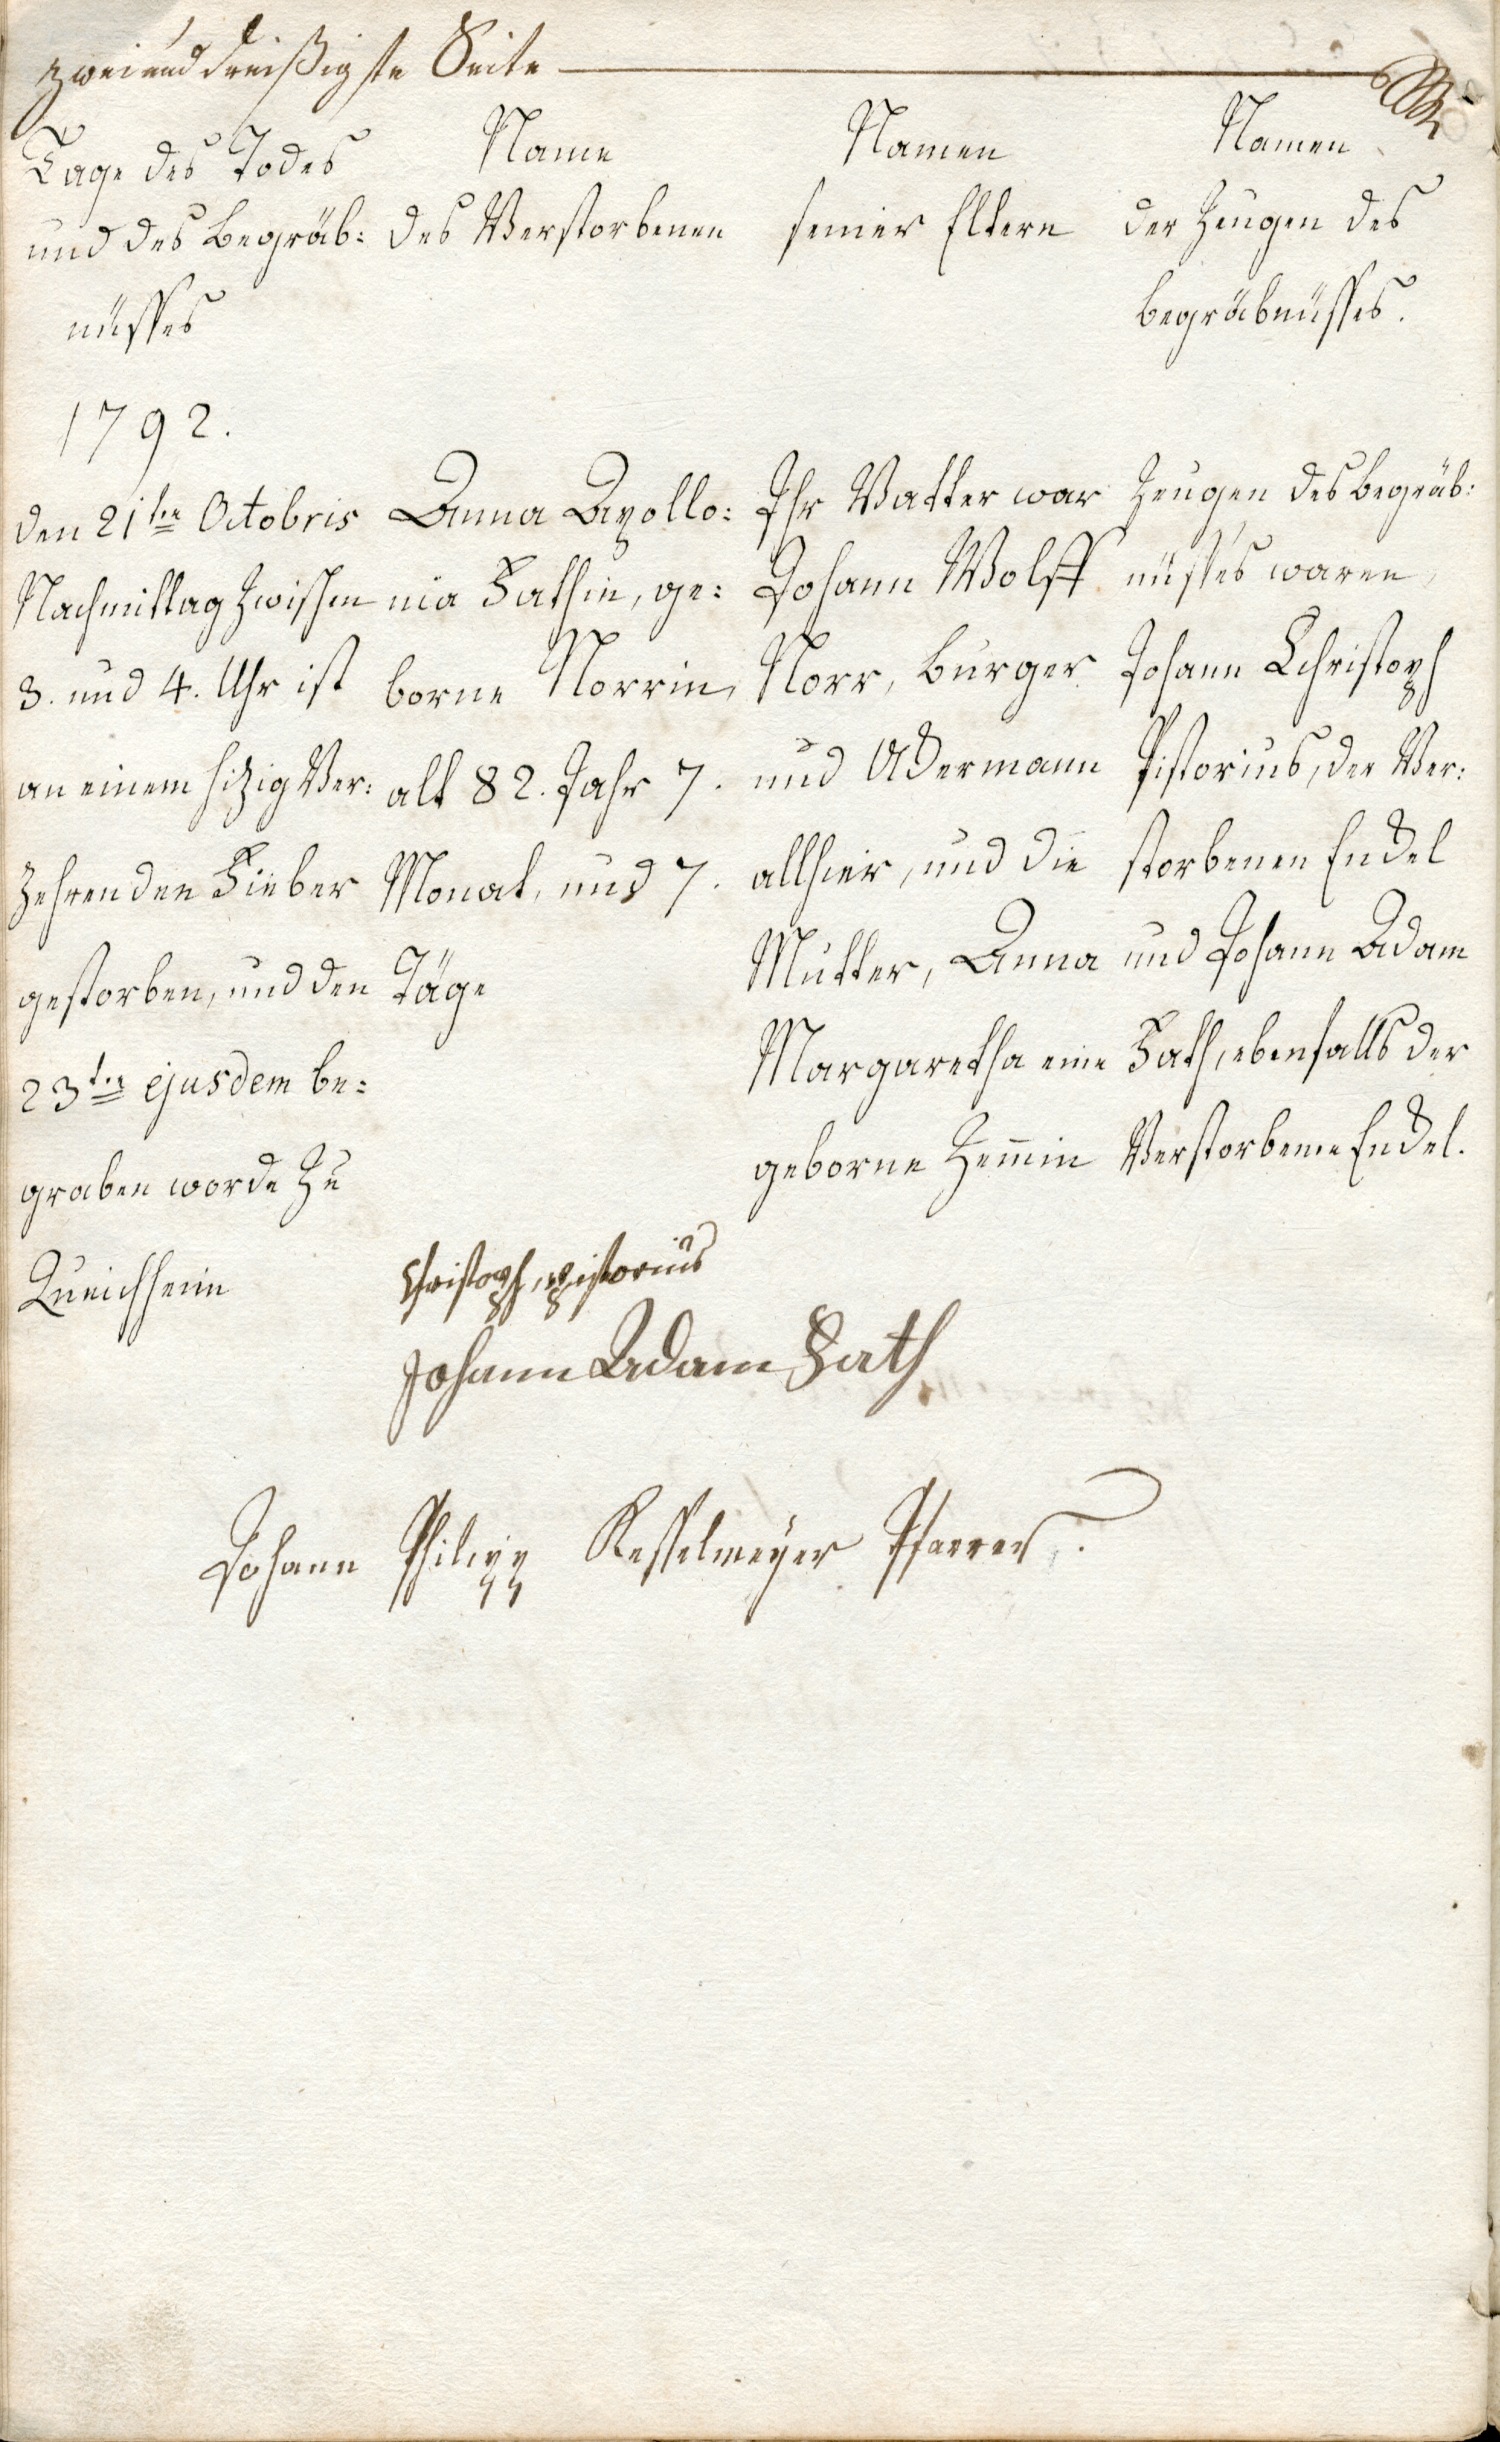 zweiunddreißigste Seite
Tage des Todes
und des Begräb:
nüsses
Name
des Verstorbenen
Namen
seiner Eltern
Namen
der Zeugen des
Begräbnüsses.
1792.
den 21ten Octobris
Nachmittag zwischen
3. und 4. Uhr ist
an einem hizig Ver:
zehrenden Fieber
gestorben, und den
23ten ejusdem be:
graben worde zu
Queichheim
Anna Apollo:
nia Fathin, ge:
borne Norrin,
alt 82. Jahr 7.
Monat, und 7.
Täge
Ihr Vatter war
Johann Wolff
Norr, Burger
und Ackermann
allhier, und die
Mutter, Anna
Margaretha eine
geborne Hem̅in
Zeugen des Begräb:
nüsses waren,
Johann Christoph
Pistorius, der Ver:
storbenen Enckel
und Johann Adam
Fath, ebenfalls der
Verstorbenen Enckel.
Christoph, pistorius
Johann Adam Fath
Johann Philipp Kesselmeyer Pfarrer.